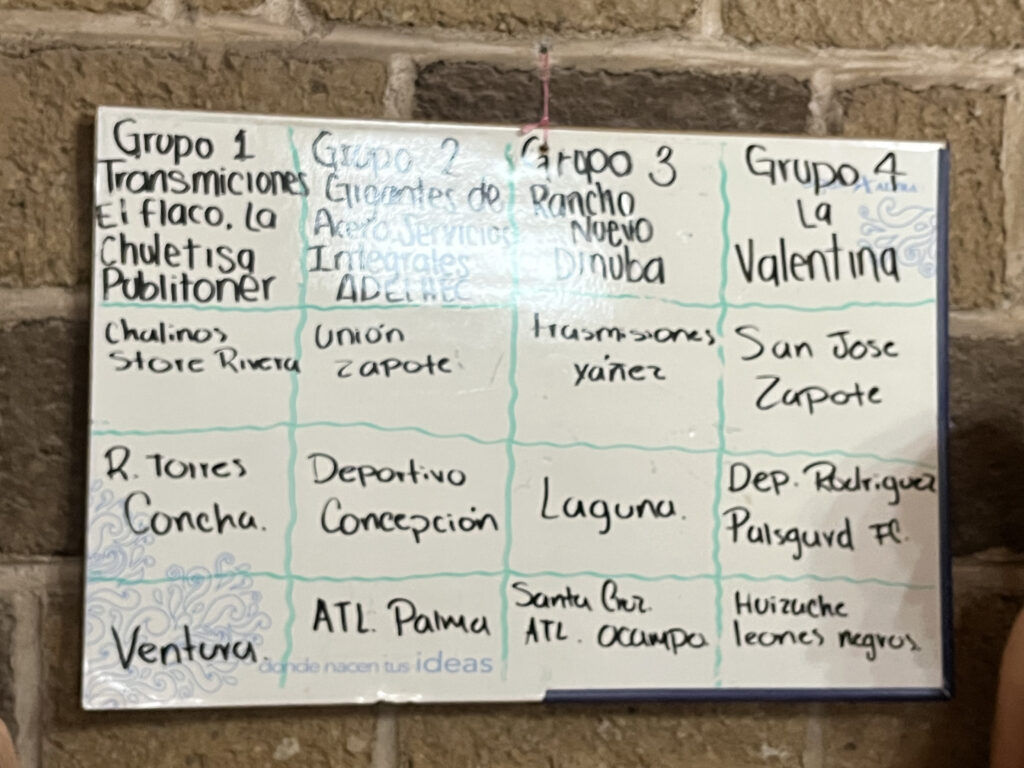 Grupo 1
Transmiciones
El flaco. La
Chuletisa
Publitoner
Grupo 2
Gigantes de
Acero. Servicios
Integrales
ADELMEC
Grupo 3
Rancho
Nuevo
Dinuba
Grupo 4
La
Valentina
Chalinos
Store Rivera
Unión
Zapote
trasmisiones
yáñez
San Jose
Zapote
R. Torres
Concha.
Deportivo
Concepción
Laguna.
Dep. Rodriguez
Pulsgurd FC.
Ventura.
ATL. Palma
Santa Cruz.
ATL. Ocampo
Huizache
leones negros.
donde nacen tus ideas